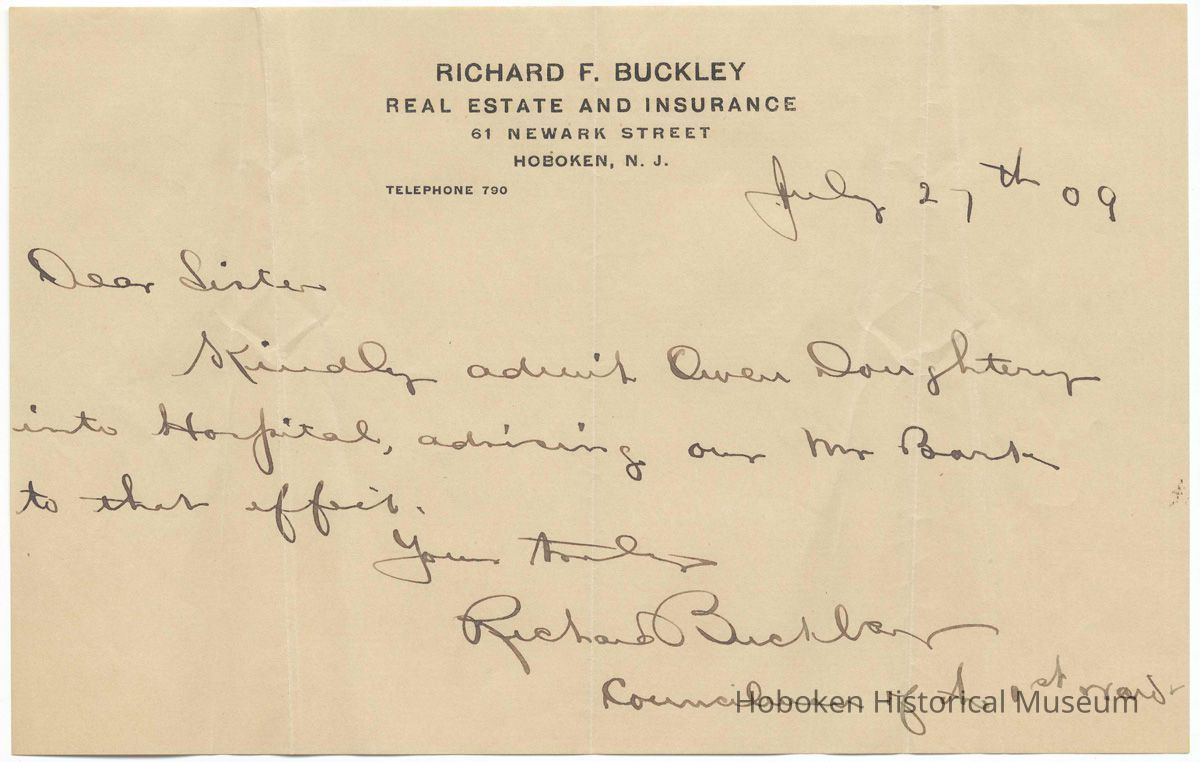 RICHARD F. BUCKLEY
REAL ESTATE AND INSURANCE
61 NEWARK STREET
HOBOKEN, N. J.
TELEPHONE 790
July 27th 09
Dear Sister
Kindly admit Owen Doughtery
into Hospital, advising our Mr Bark
to that effect.
Yours truly
Richard Buckley
Councilman of 1st ward
Hoboken Historical Museum